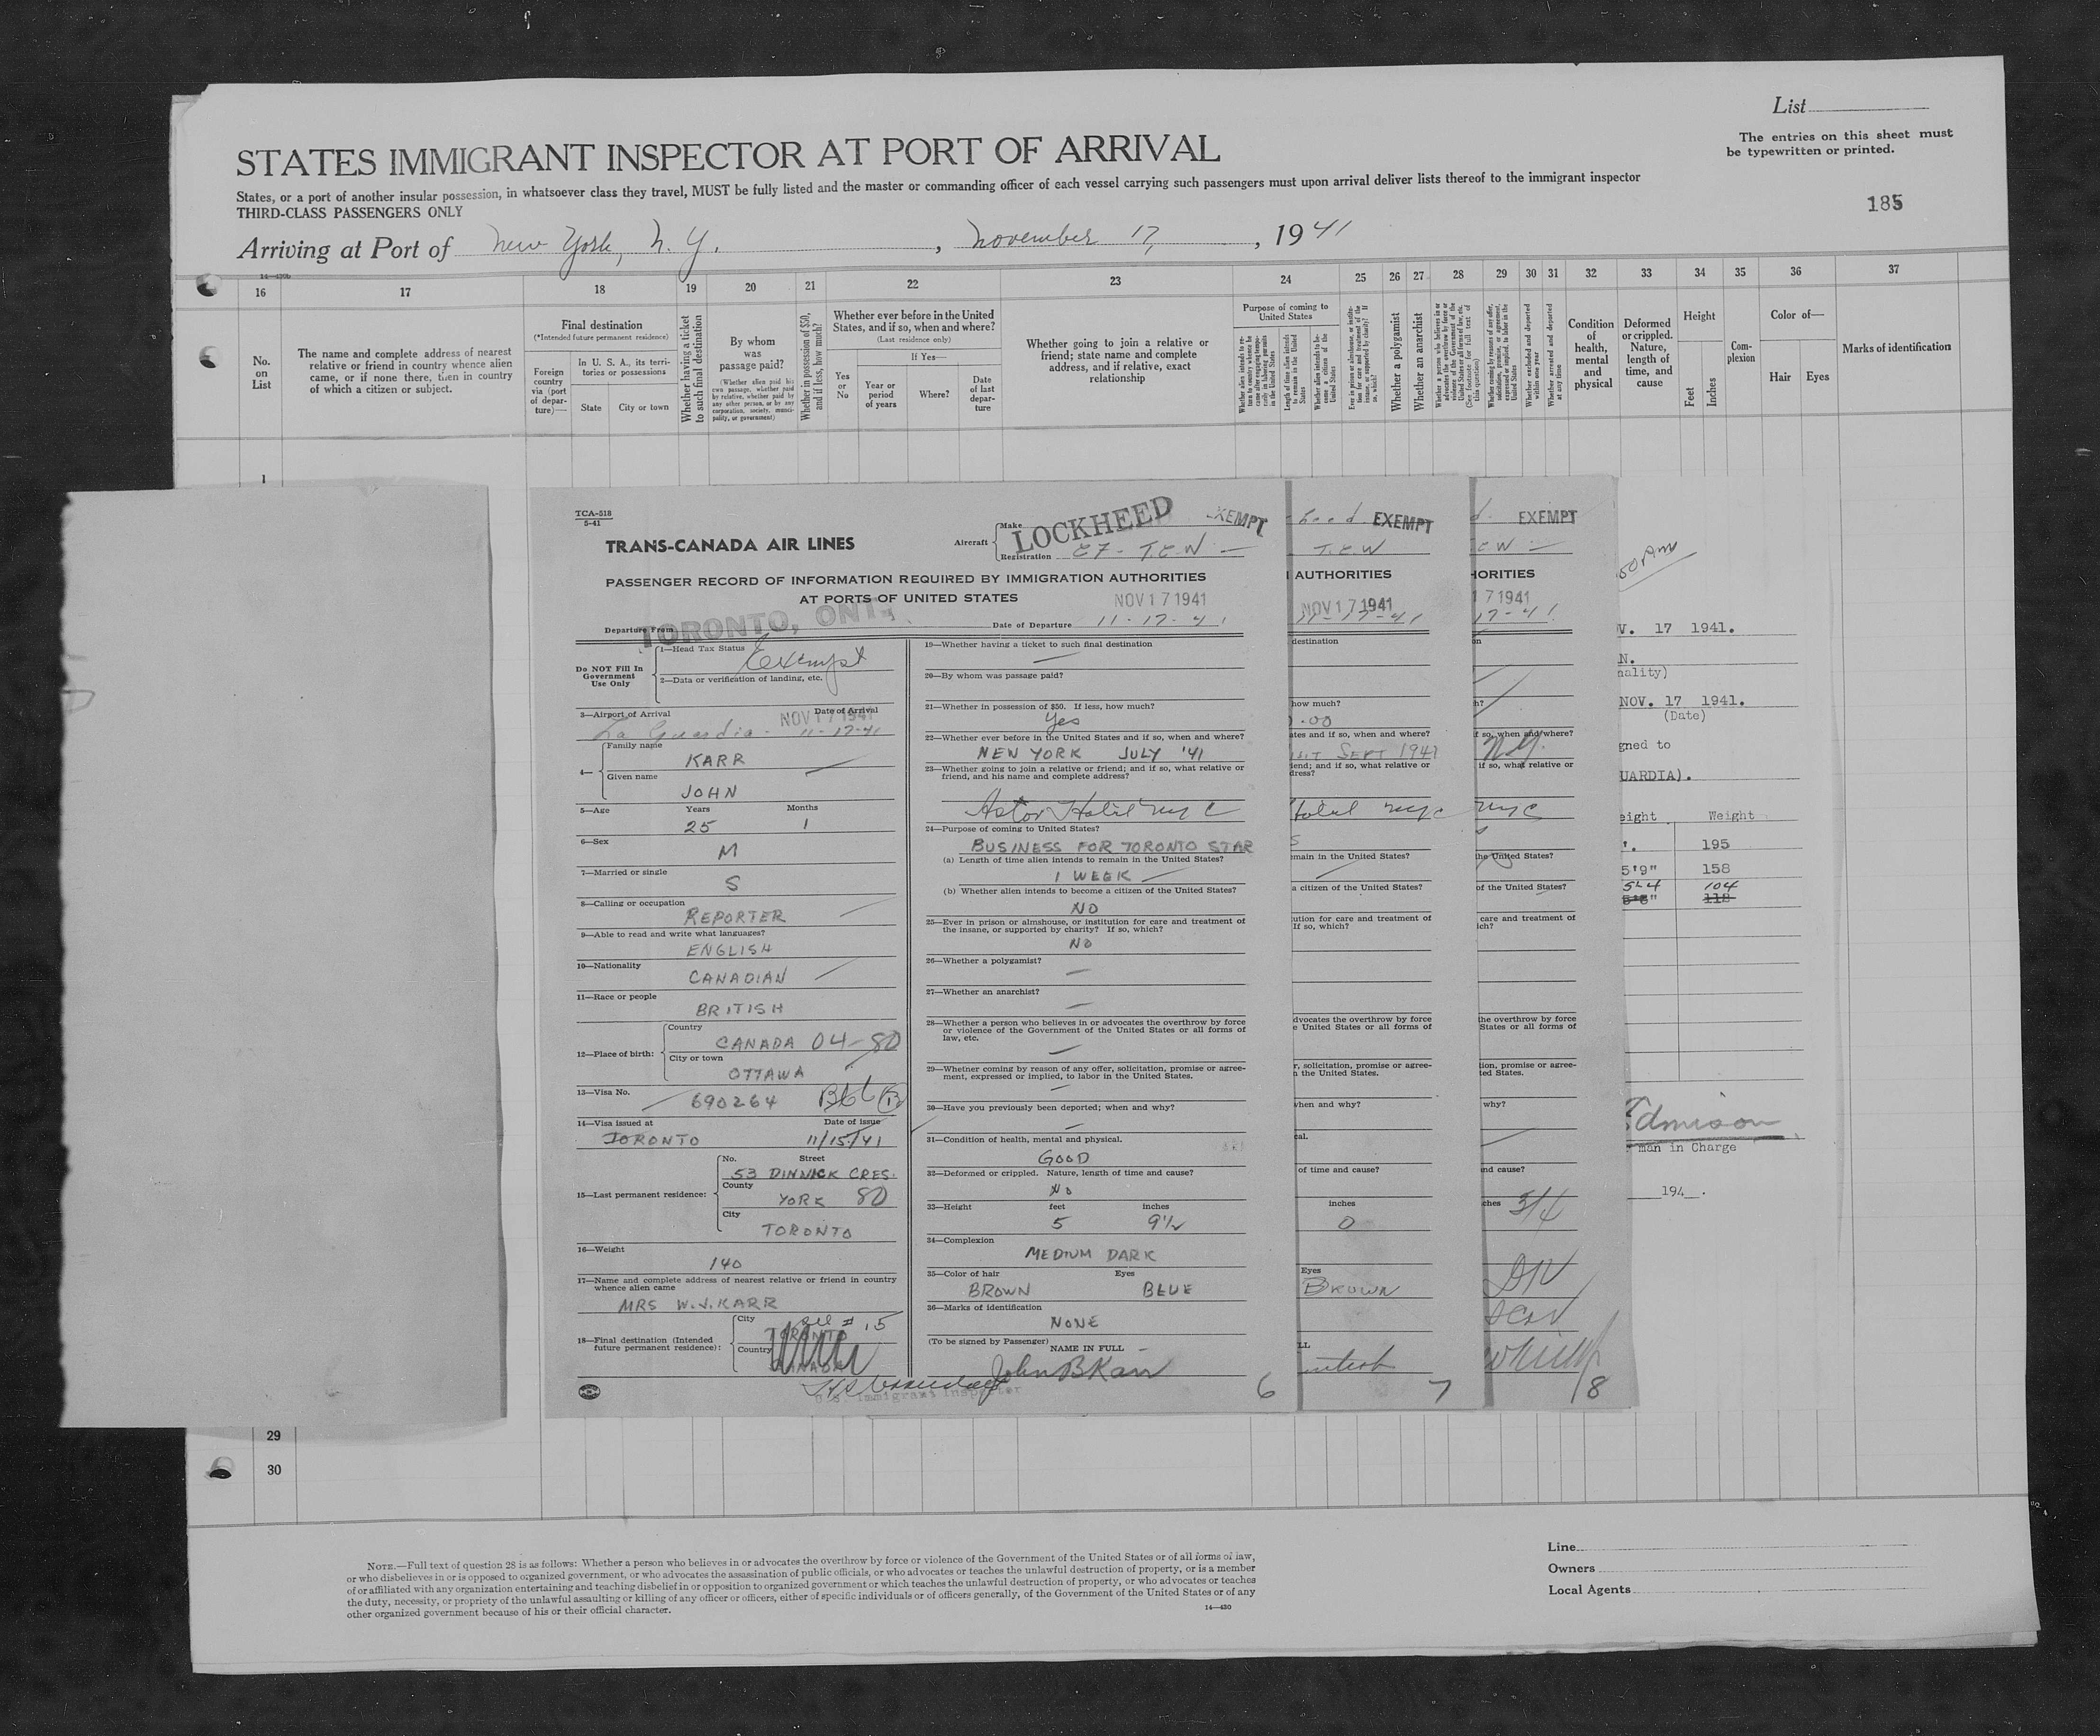 List
The entries on this sheet must
be typewritten or printed.
STATES IMMIGRANT INSPECTOR AT PORT OF ARRIVAL
States, or a port of another insular possession, in whatsoever class they travel, MUST be fully listed and the master or commanding officer of each vessel carrying such passengers must upon arrival deliver lists thereof to the immigrant inspector
THIRD-CLASS PASSENGERS ONLY
185
Arriving at Port of New York, N. Y. , November 17, , 1941
14—430b
16 17 18 19 20 21 22 23 24 25 26 27 28 29 30 31 32 33 34 35 36 37
No. on List
The name and complete address of nearest relative or friend in country whence alien came, or if none there, then in country of which a citizen or subject.
Final destination
(*Intended future permanent residence)
Foreign country via (port of departure)—
In U. S. A., its territories or possessions
State City or town
Whether having a ticket to such final destination
By whom was passage paid?
(Whether alien paid his own passage, whether paid by relative, whether paid by any other person, or by any corporation, society, municipality, or government)
Whether in possession of $50, and if less, how much?
Whether ever before in the United States, and if so, when and where?
(Last residence only)
Yes or No
If Yes—
Year or period of years
Where?
Date of last departure
Whether going to join a relative or friend; state name and complete address, and if relative, exact relationship
Purpose of coming to United States
Length of time alien intends to remain in the United States
Whether a polygamist
Whether an anarchist
Whether arrested and deported at any time
Condition of health, mental and physical
Deformed or crippled. Nature, length of time, and cause
Height
Feet Inches
Complexion
Color of—
Hair Eyes
Marks of identification
1
TCA-518
5-41
TRANS-CANADA AIR LINES
Aircraft
Make LOCKHEED
EXEMPT
Registration CF - T.C.W -
PASSENGER RECORD OF INFORMATION REQUIRED BY IMMIGRATION AUTHORITIES
AT PORTS OF UNITED STATES
NOV 17 1941
Departure From TORONTO, ONT.
Date of Departure 11-17-41
Do NOT Fill In Government Use Only
1—Head Tax Status Exempt
2—Data or verification of landing, etc.
3—Airport of Arrival La Guardia
Date of Arrival NOV 17 1941 11-17-41
4— Family name KARR
Given name JOHN
5—Age Years 25 Months 1
6—Sex M
7—Married or single S
8—Calling or occupation REPORTER
9—Able to read and write what languages? ENGLISH
10—Nationality CANADIAN
11—Race or people BRITISH
12—Place of birth: Country CANADA 04-80
City or town OTTAWA
13—Visa No. 690264
14—Visa issued at TORONTO Date of issue 11/15/41
15—Last permanent residence: No. Street 53 DINNICK CRES.
County YORK 80
City TORONTO
16—Weight 140
17—Name and complete address of nearest relative or friend in country whence alien came
MRS W.J. KARR
18—Final destination (Intended future permanent residence): City TORONTO see # 15
Country CANADA
U.S. Immigrant Inspector
19—Whether having a ticket to such final destination
20—By whom was passage paid?
21—Whether in possession of $50. If less, how much?
Yes
22—Whether ever before in the United States and if so, when and where?
NEW YORK JULY '41
23—Whether going to join a relative or friend; and if so, what relative or friend, and his name and complete address?
Astor Hotel NYC
24—Purpose of coming to United States?
BUSINESS FOR TORONTO STAR
(a) Length of time alien intends to remain in the United States?
1 WEEK
(b) Whether alien intends to become a citizen of the United States?
NO
25—Ever in prison or almshouse, or institution for care and treatment of the insane, or supported by charity? If so, which?
NO
26—Whether a polygamist?
27—Whether an anarchist?
28—Whether a person who believes in or advocates the overthrow by force or violence of the Government of the United States or all forms of law, etc.
29—Whether coming by reason of any offer, solicitation, promise or agreement, expressed or implied, to labor in the United States.
30—Have you previously been deported; when and why?
31—Condition of health, mental and physical.
GOOD
32—Deformed or crippled. Nature, length of time and cause?
NO
33—Height feet 5 inches 9½
34—Complexion
MEDIUM DARK
35—Color of hair BROWN Eyes BLUE
36—Marks of identification
NONE
(To be signed by Passenger) NAME IN FULL
John B Karr
6
EXEMPT
T.C.W
AUTHORITIES
NOV 17 1941
11-17-41
destination
how much?
.00
SEPT 1941
Hotel NYC
emain in the United States?
a citizen of the United States?
inches
0
Eyes
BROWN
7
EXEMPT
HORITIES
17 1941
17-41
N.Y.
NYC
the United States?
of the United States?
why?
nd cause?
ches 3/4
8
V. 17 1941.
N.
nality)
NOV. 17 1941.
(Date)
gned to
UARDIA).
eight Weight
195
5'9" 158
5-4 104
man in Charge
194 .
29
30
NOTE.—Full text of question 28 is as follows: Whether a person who believes in or advocates the overthrow by force or violence of the Government of the United States or of all forms of law,
or who disbelieves in or is opposed to organized government, or who advocates the assassination of public officials, or who advocates or teaches the unlawful destruction of property, or is a member
of or affiliated with any organization entertaining and teaching disbelief in or opposition to organized government or which teaches the unlawful destruction of property, or who advocates or teaches
the duty, necessity, or propriety of the unlawful assaulting or killing of any officer or officers, either of specific individuals or of officers generally, of the Government of the United States or of any
other organized government because of his or their official character.
14—430
Line
Owners
Local Agents